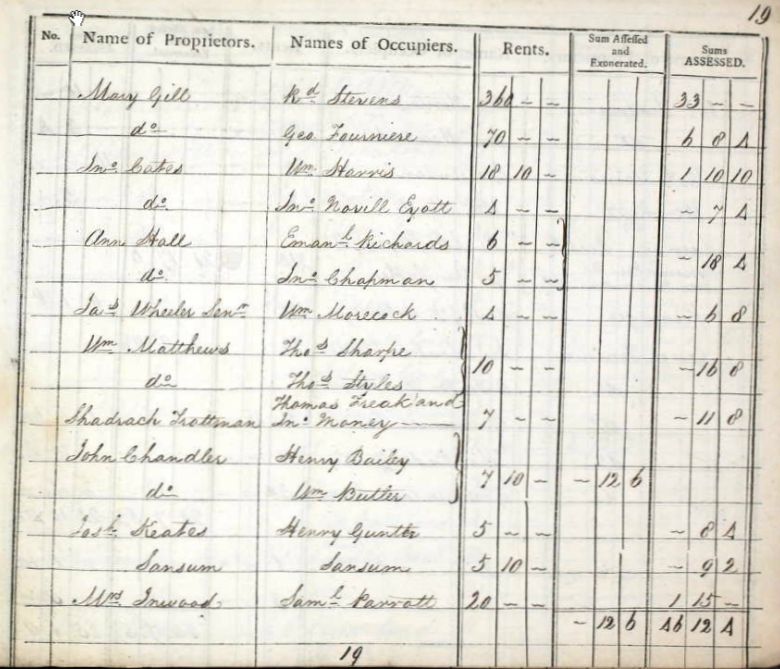 19
No. Name of Proprietors. Names of Occupiers. Rents. Sum Assessed and Exonerated. Sums ASSESSED.
Mary Gill Rd Stevens 360 - - 33 - -
do Geo Fourniere 70 - - 6 8 4
Jno Cates Wm Harris 18 10 - 1 10 10
do Jno Novill Eyott 4 - - - 7 4
Ann Hall Emanl Richards 6 - -
do Jno Chapman 5 - - - 18 4
Jas Wheeler Senr Wm Morecock 4 - - - 6 8
Wm Matthews Thos Sharpe
10 - - - 16 8
do Thos Styles
Thomas Freak and
Shadrach Trottman Jno Money 7 - - - 11 8
John Chandler Henry Bailey
do Wm Butler 7 10 - - 12 6
Josh Keates Henry Gunter 5 - - - 8 4
Sansum Sansum 5 10 - - 9 2
Mrs Inwood Saml Parrott 20 - - 1 15 -
- 12 6 46 12 4
19